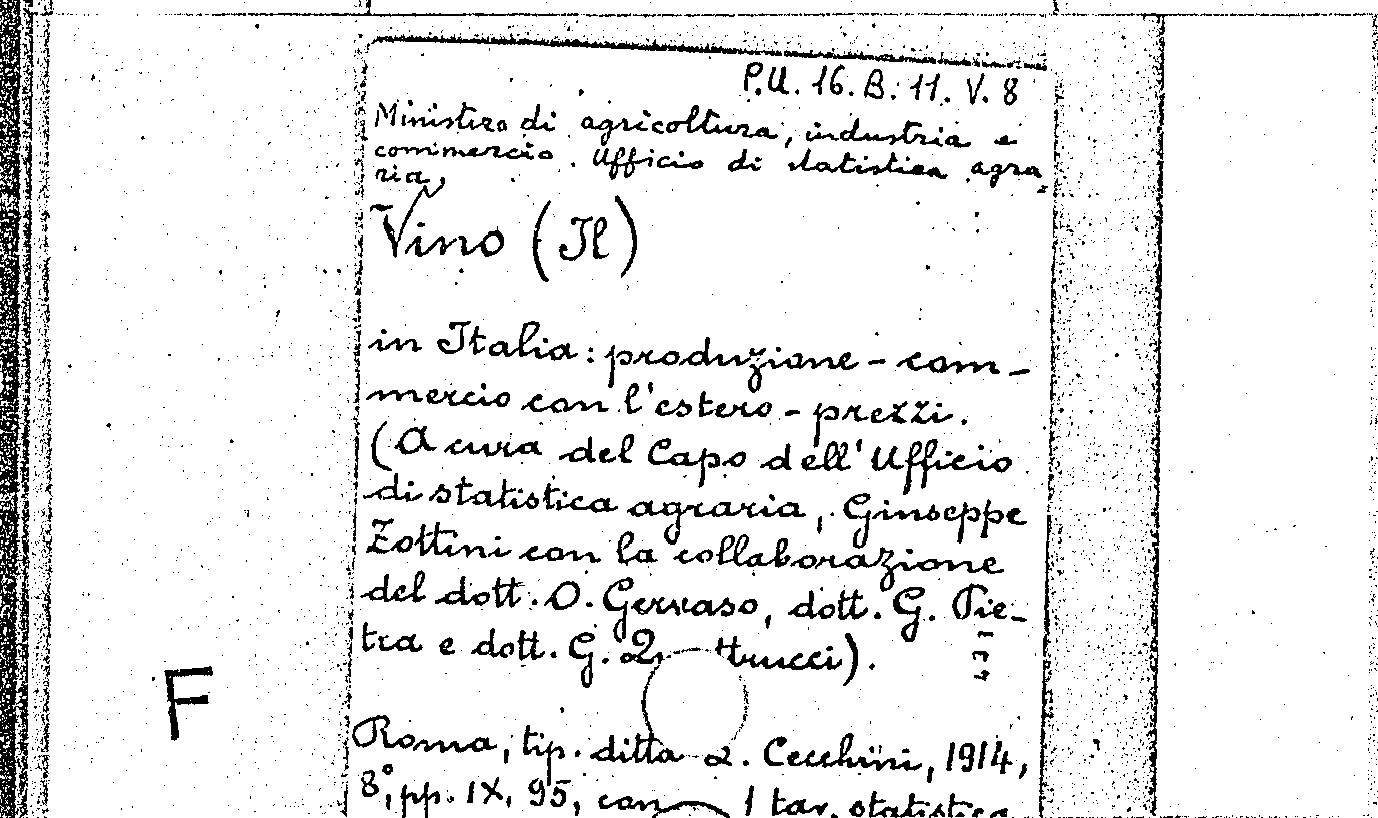 P.U. 16. B. 11. V. 8
Ministero di agricoltura, industria e
commercio. Ufficio di statistica agra=
ria,
Vino (Il)
in Italia: produzione - com-
mercio con l'estero - prezzi.
(A cura del Capo dell'Ufficio
di statistica agraria, Giuseppe
Zottini con la collaborazione
del dott. O. Gervaso, dott. G. Pie-
tra e dott. G.
Roma, tip. ditta Cecchini, 1914,
8°, pp. IX, 95, con 1 tav. statistica
F